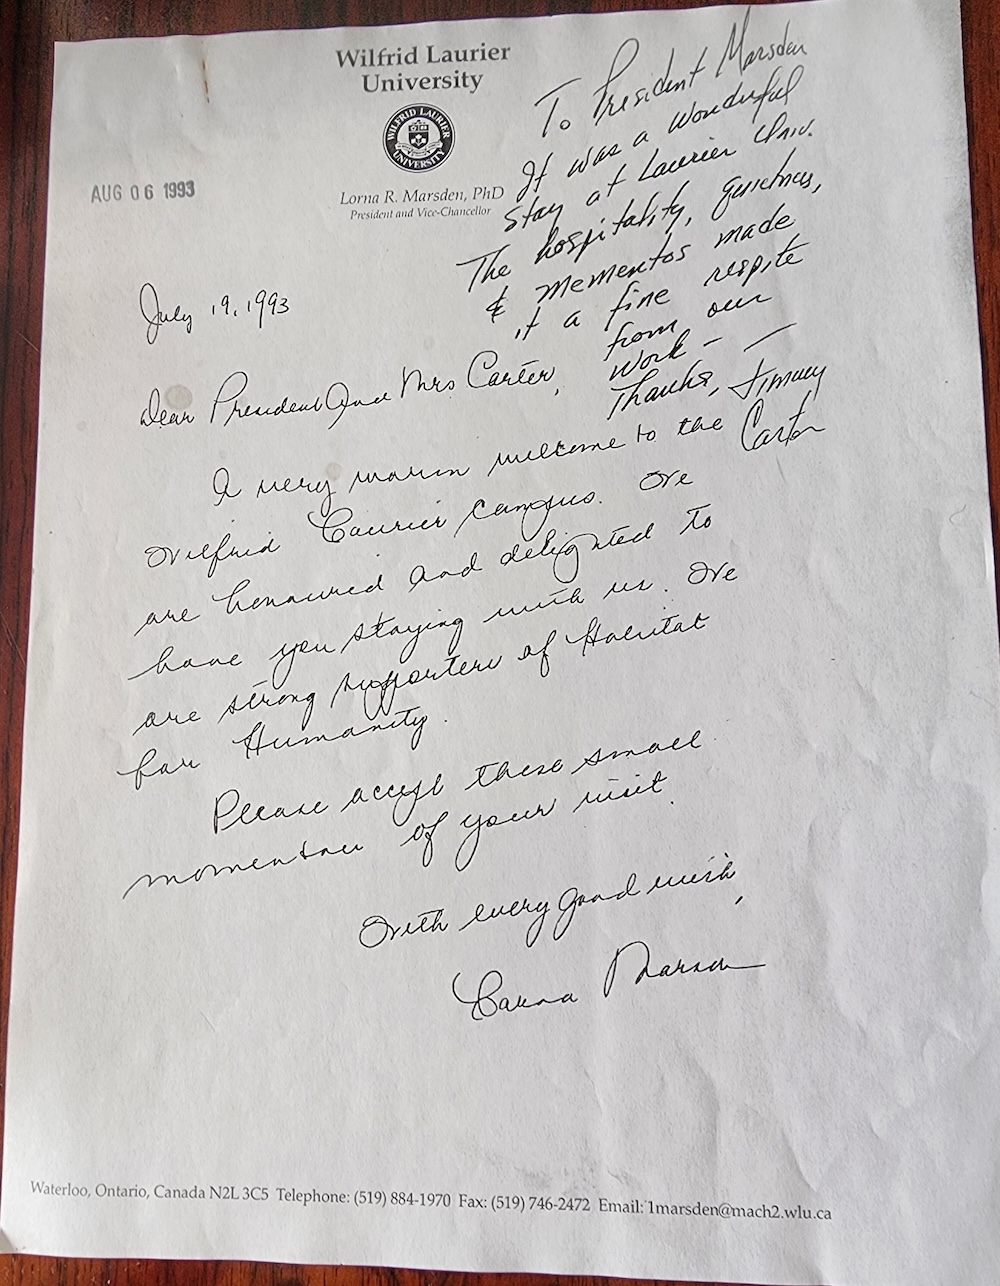 Wilfrid Laurier
University
WILFRID LAURIER
UNIVERSITY
AUG 06 1993
Lorna R. Marsden, PhD
President and Vice-Chancellor
To President Marsden
It was a wonderful
stay at Laurier Univ.
The hospitality, quietness,
& mementos made
it a fine respite
from our
work –
Thanks, Jimmy
Carter
July 19, 1993
Dear President And Mrs Carter,
A very warm welcome to the
Wilfrid Laurier campus. We
are honoured and delighted to
have you staying with us. We
are strong supporters of Habitat
for Humanity.
Please accept these small
momentou of your visit.
With every good wish,
Lorna Marsden
Waterloo, Ontario, Canada N2L 3C5 Telephone: (519) 884-1970 Fax: (519) 746-2472 Email: 1marsden@mach2.wlu.ca